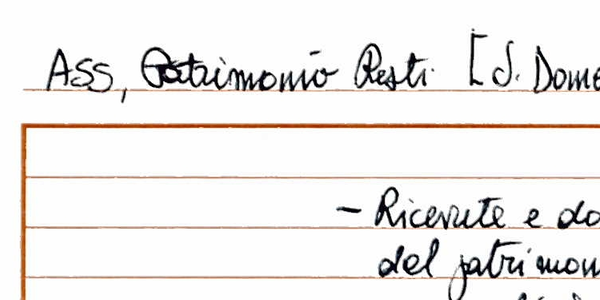 ASS, Patrimonio Resti [S. Dome
- Ricevute e do
del patrimon